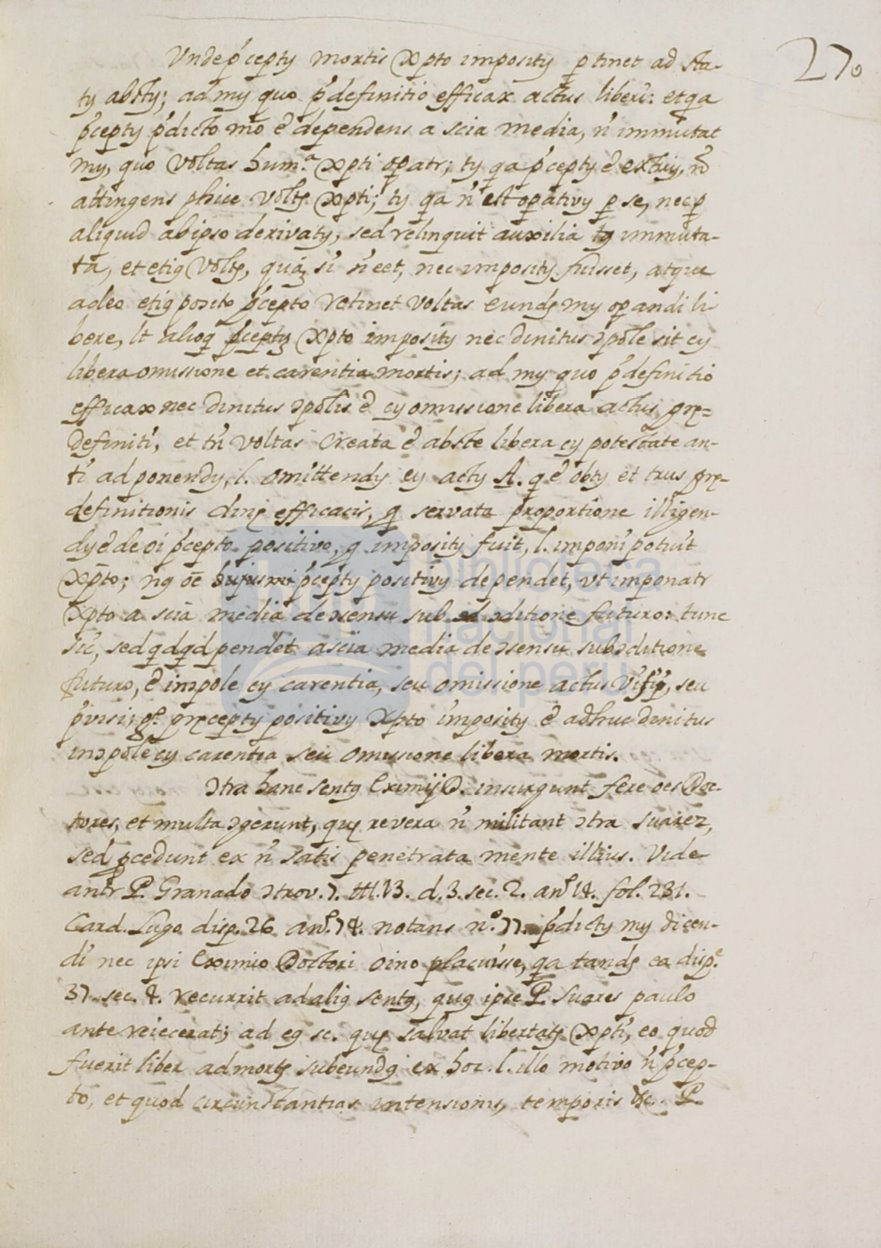 270
Vnde p̃cepty mortis Xp̃to imposity p̱tinet ad sta-
ty absty; ad my quo p̃definitio efficax actus liberi: et qa
p̃cepty p̃dicto mo ẽ dependens a scia media, ñ immutat
my, quo voltas hum.ª Xpti opatr; ty qa p̃cepty ẽ
attingens phice Xpti; ty qa ñ est opativy p se, nec p
aliquid ab ipso derivaty, sed relinquit auxilia immuta-
ta, et etiq si ñ eet, nec imposity fuisset, atque
adeo etiq posito p̃cepto retinet voltas eundę my opandi li
bere, lt alioq p̃cepty Xpto imposity nec divinitus ɔpole sit cy
libera omissione et carentia mortis; ad my quo p̃definitio
efficax nec divinitus ɔpolis ẽ cy omissione libera actus prę=
definiti, et tñ voltas creata ẽ abste libera cy potestate an-
ti ad ponendy, l. omittendy ey acty A. q ẽ obty et trus prę-
definitionis divinę efficacis, q servata proportione illigen-
dy ẽ de oi p̃cepto positivo, q imposity fuit, l. imponi potuit
Xp̃to; nq oẽ hujusmi p̃cepty positivy dependet, vt imponatr
Xpto a scia media de ɔsensu sub ɔditione futuro: tunc
sic, sed qdqd pendet a scia media de ɔsensu sub ɔditione
futuro, ẽ inɔpole cy carentia, seu omissione actus seu
p̃visi; gº. pręcepty positivy Xpto imposity ẽ adhuc divinitus
inɔpole cy carentia seu omissione libera mortis.
Ɔtra hanc sentę Eximij D. insurgunt fere oes Doc-
tores, et multa ɔgerunt, quę revera ñ militant ɔtra Suarez,
sed p̱cedunt ex ñ satis penetrata mente illius. Vide-
antr P. Granado ɔtrov. 7. tt. 13. d. 3. sec. 2. a nº. 14. fol. 281.
Card. Lugo disp. 26. a nº. 74. notans nº 77. p̃dicty my dicen-
di nec ipsi Eximio Doctori oino placuisse, qa tandę ea disp.ᵉ
37. sec. 4. recurrit ad aliq sentę, quę ipse P. Suares paulo
ante reiecerat; ad eq sc. quę salvat libertatę Xpti, eo quod
fuerit liber ad mortę subeundę ex hoc, l. illo motivo ñ p̃cep-
to, et quod circunstantias intensionis, temporis &c. P.
biblioteca
nacional
del perú